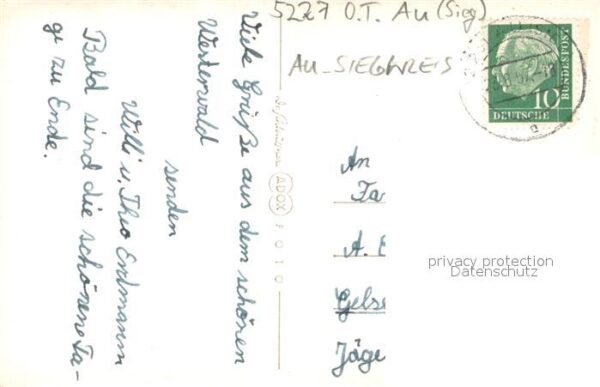 5227 O.T. Au (Sieg)
AU-SIEGKREIS
Viele Grüße aus dem schönen
Westerwald
senden
Willi u. Theo Erdmann
Bald sind die schönen Ta-
ge zu Ende.
ADOX
FOTO
10
DEUTSCHE
BUNDESPOST
An
Fa
A. E
Gelse
Jäge
privacy protection
Datenschutz